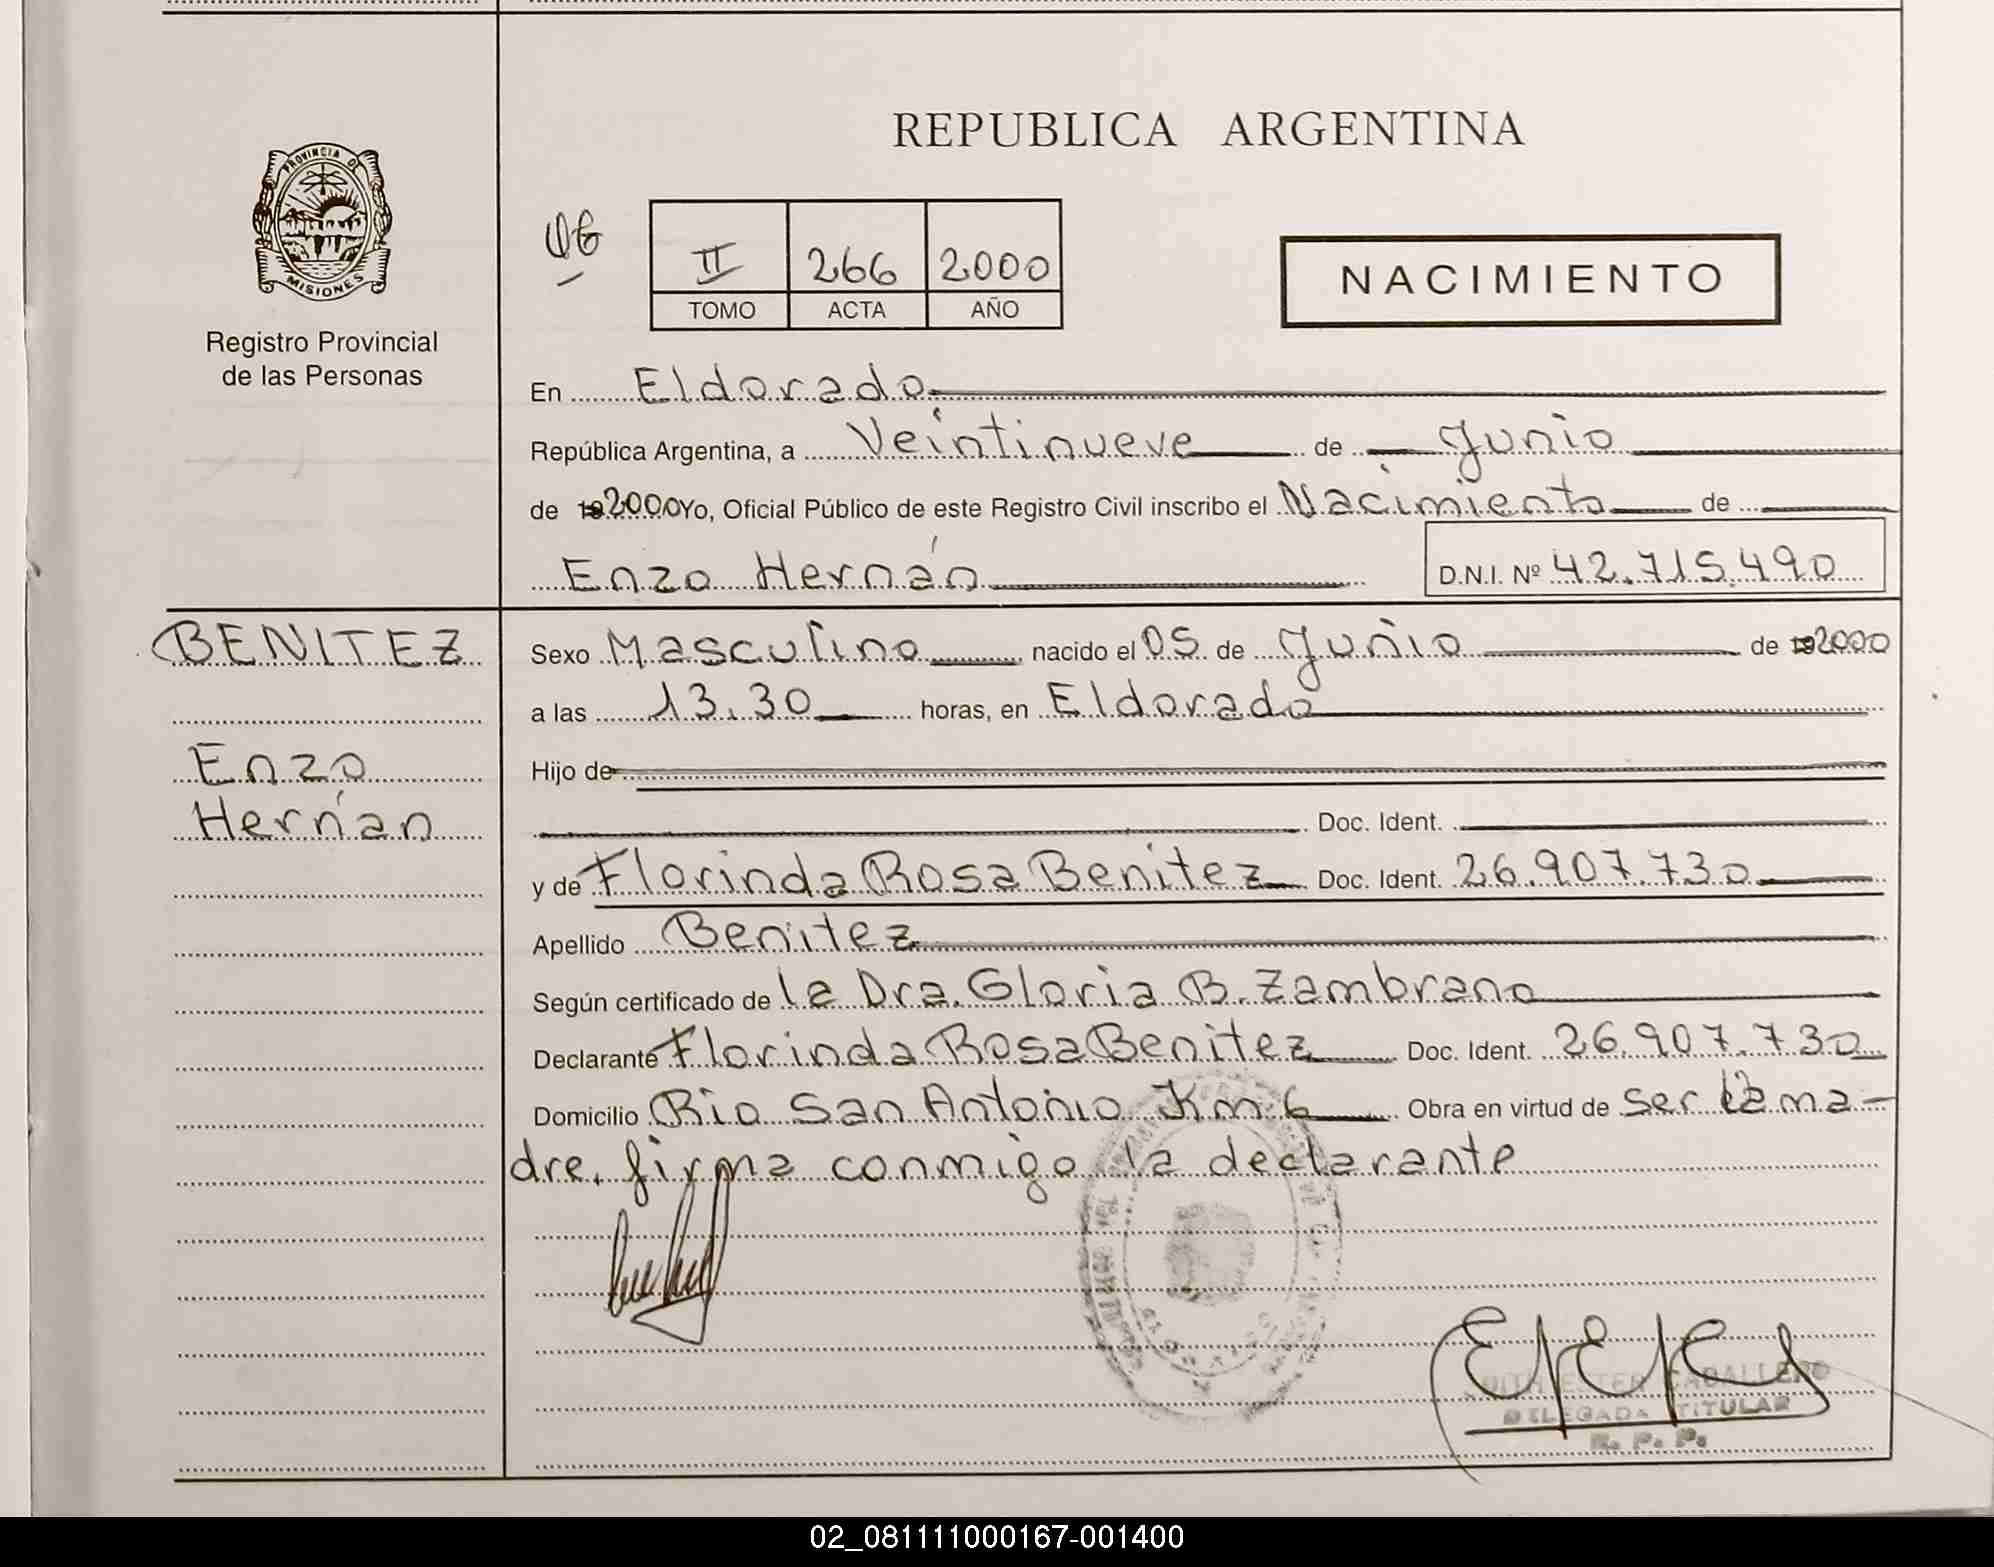 REPUBLICA ARGENTINA
PROVINCIA DE MISIONES
Registro Provincial
de las Personas
II 266 2000
TOMO ACTA AÑO
NACIMIENTO
En Eldorado
República Argentina, a Veintinueve de Junio
de 19 2000 Yo, Oficial Público de este Registro Civil inscribo el Nacimiento de
Enzo Hernán D.N.I. Nº 42.715.490
BENITEZ
Enzo
Hernán
Sexo Masculino nacido el 05 de Junio de 19 2000
a las 13.30 horas, en Eldorado
Hijo de
Doc. Ident.
y de Florinda Rosa Benitez Doc. Ident. 26.907.730
Apellido Benitez
Según certificado de la Dra. Gloria B. Zambrano
Declarante Florinda Rosa Benitez Doc. Ident. 26.907.730
Domicilio Rio San Antonio Km 6 Obra en virtud de ser la ma-
dre. firma conmigo la declarante
ESTER CABALLERO
DELEGADA TITULAR
R. P. P.
02_081111000167-001400